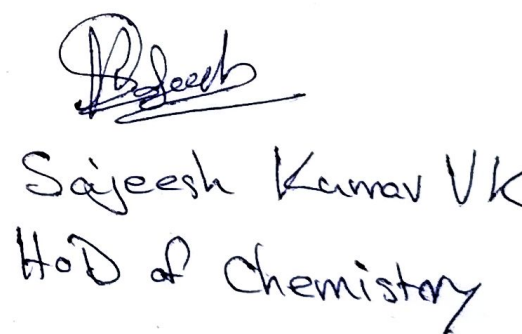 Sajeesh
Sajeesh Kumar VK
HoD of Chemistry